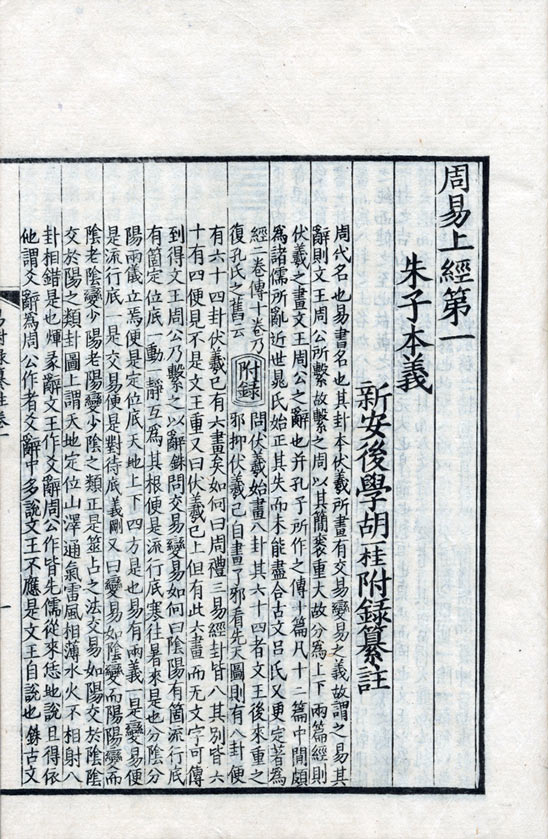 周易上經第一
朱子本義
新安後學胡一桂附録纂註
周代名也易書名也其卦本伏羲所畫有交易變易之義故謂之易其
辭則文王周公所繫故繫之周以其簡袠重大故分為上下兩篇經則
伏羲之畫文王周公之辭也并孔子所作之傳十篇凡十二篇中間頗
為諸儒所亂近世晁氏始正其失而未能盡合古文吕氏又更定著為
經二卷傳十卷乃復孔氏之舊云
附録
問伏羲始畫八卦其六十四者文王後來重之
邪抑伏羲已自畫了邪看先天圖則有八卦便
有六十四卦伏羲已有六畫矣如何曰周禮三易經卦皆八其别皆六
十有四便見不是文王重又曰伏羲已上但有此六畫而无文字可傳
到得文王周公乃繫之以辭銖問交易變易如何曰陰陽有箇流行底
有箇定位底一動一靜互為其根便是流行底寒往暑來是也分陰分
陽兩儀立焉便是定位底天地上下四方是也易有兩義一是變易便
是流行底一是交易便是對待底義剛又曰變易如陰變而陽陽變而
陰老陰變少陽老陽變少陰之類正是筮占之法交易如陽交於陰陰
交於陽之類卦圖上謂天地定位山澤通氣雷風相薄水火不相射八
卦相錯是也煇彖辭文王作爻辭周公作皆先儒從來恁地說且得依
他謂爻辭為周公作者爻辭中多說文王不應是文王自說也銖古文